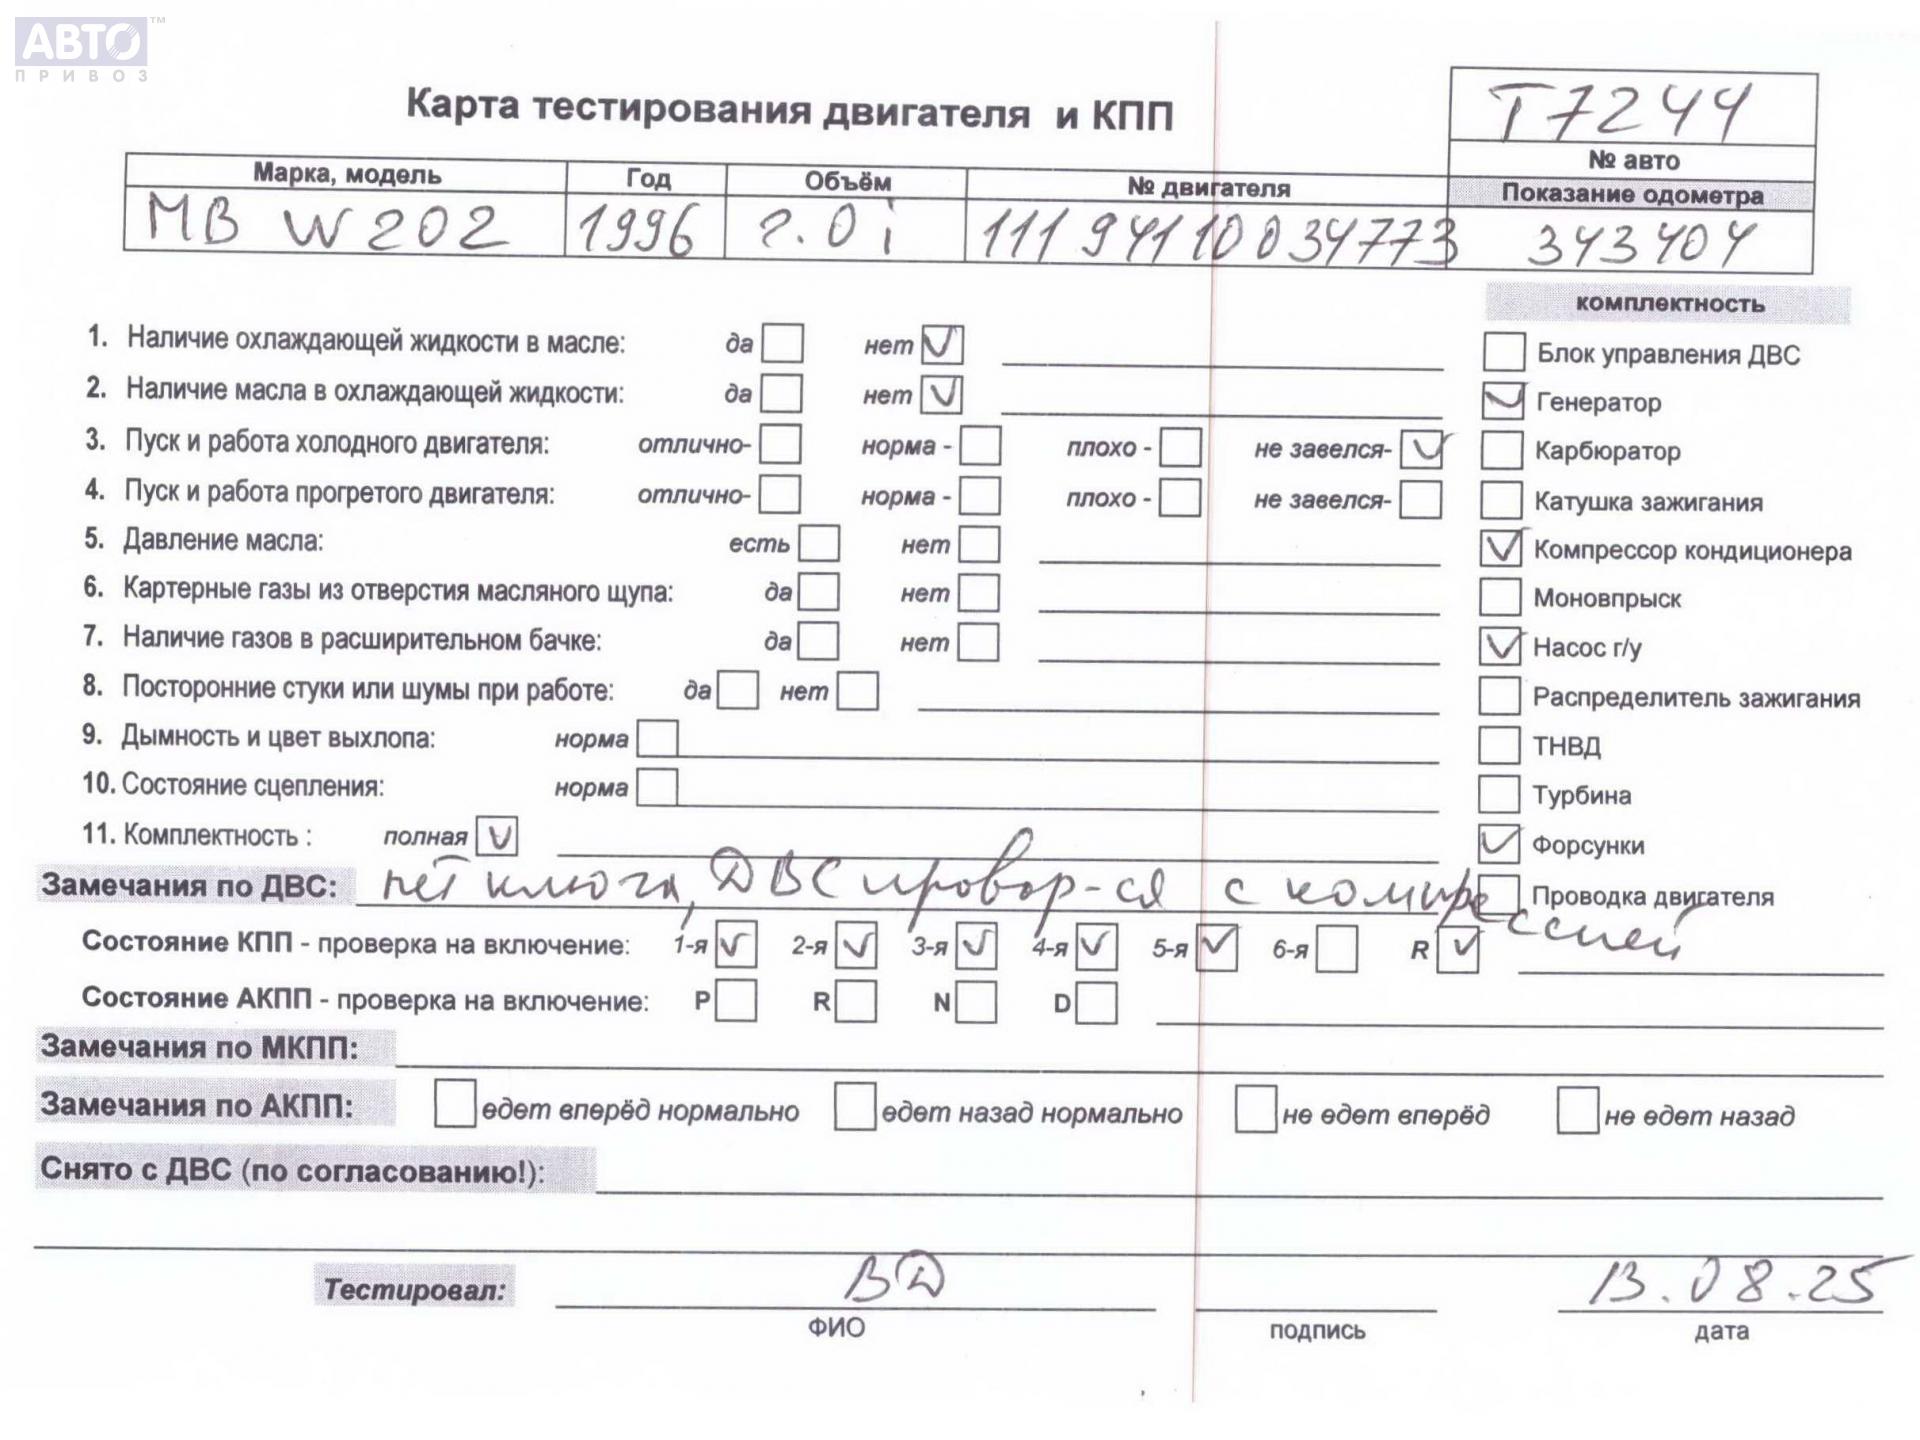 АВТО™
ПРИВОЗ
Карта тестирования двигателя и КПП
T7244
№ авто
Марка, модель Год Объём № двигателя Показание одометра
MB W202 1996 2.0 i 111 941 10 034773 343404
комплектность
1. Наличие охлаждающей жидкости в масле: да нет V
Блок управления ДВС
2. Наличие масла в охлаждающей жидкости: да нет V
V Генератор
3. Пуск и работа холодного двигателя: отлично- норма - плохо - не завелся- V
Карбюратор
4. Пуск и работа прогретого двигателя: отлично- норма - плохо - не завелся-
Катушка зажигания
5. Давление масла: есть нет
V Компрессор кондиционера
6. Картерные газы из отверстия масляного щупа: да нет
Моновпрыск
7. Наличие газов в расширительном бачке: да нет
V Насос г/у
8. Посторонние стуки или шумы при работе: да нет
Распределитель зажигания
9. Дымность и цвет выхлопа: норма
ТНВД
10. Состояние сцепления: норма
Турбина
11. Комплектность : полная V
V Форсунки
Замечания по ДВС: нет ключа, ДВС провор-ся с компрессией
Проводка двигателя
Состояние КПП - проверка на включение: 1-я V 2-я V 3-я V 4-я V 5-я V 6-я R V
Состояние АКПП - проверка на включение: P R N D
Замечания по МКПП:
Замечания по АКПП: едет вперёд нормально едет назад нормально не едет вперёд не едет назад
Снято с ДВС (по согласованию!):
Тестировал: ВД 13.08.25
ФИО подпись дата